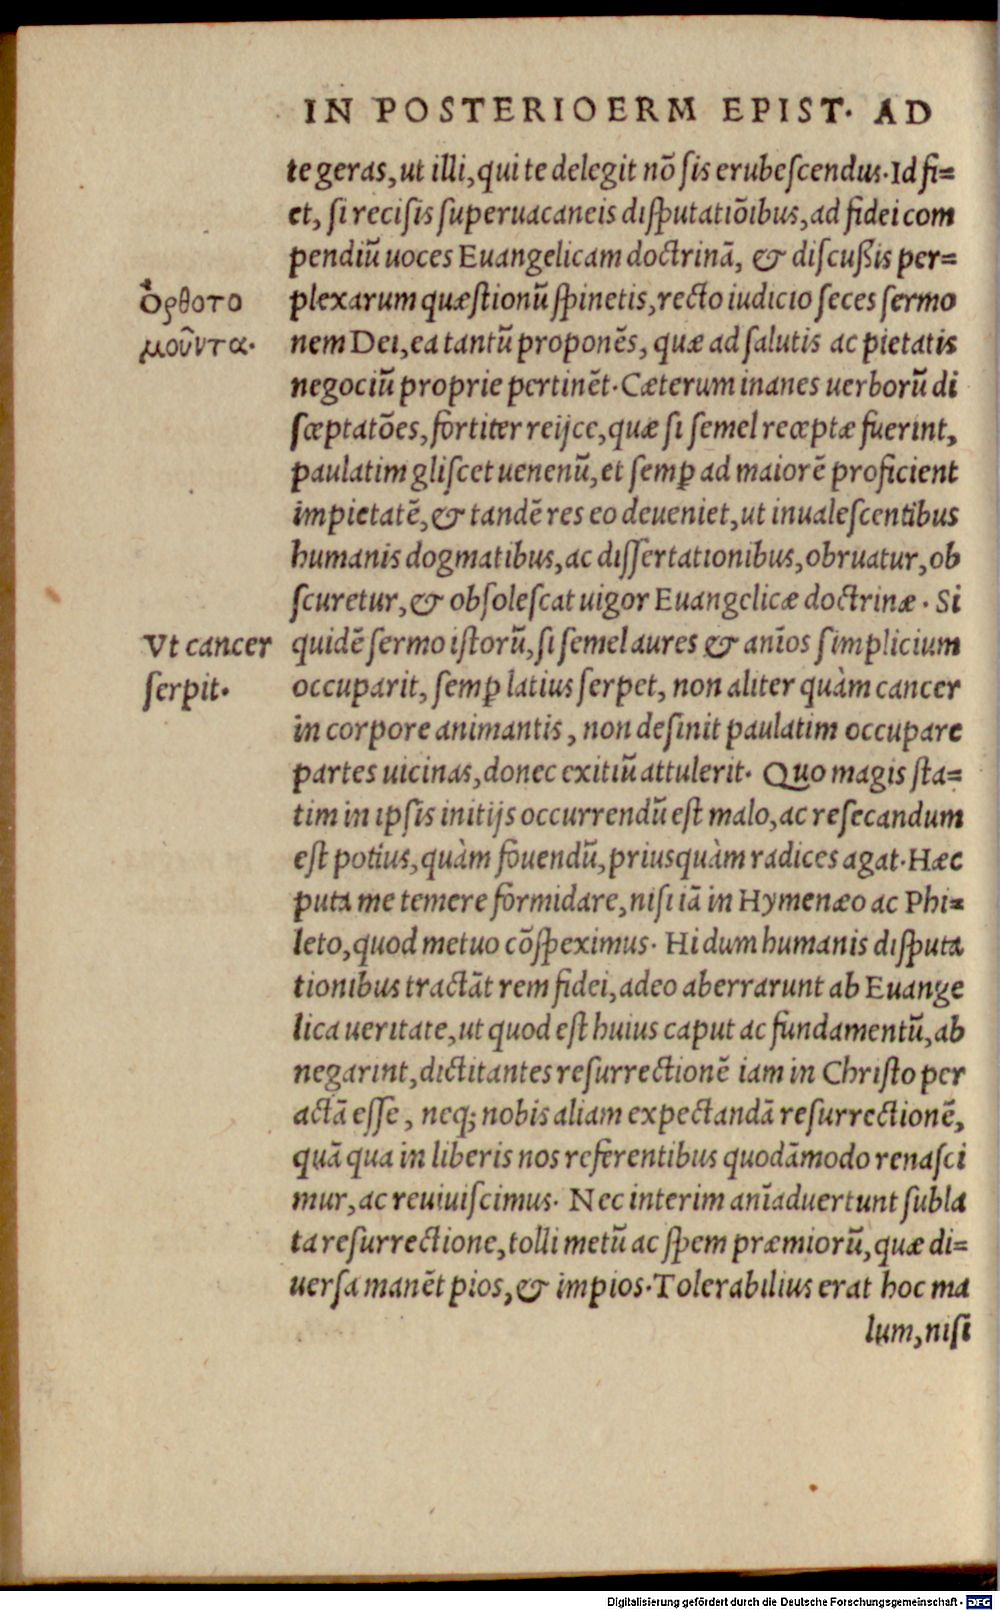 IN POSTERIOERM EPIST. AD
te geras, ut illi, qui te delegit nō sis erubescendus. Id fi=
et, si recisis superuacaneis disputatiōibus, ad fidei com
pendiū uoces Euangelicam doctrinā, & discußis per=
ὀρθοτο
plexarum quæstionū spinetis, recto iudicio seces sermo
μοῦντα.
nem Dei, ea tantū proponēs, quæ ad salutis ac pietatis
negociū proprie pertinēt. Cæterum inanes uerborū di
sceptatōes, fortiter reijce, quæ si semel receptæ fuerint,
paulatim gliscet uenenū, et semꝑ ad maiorē proficient
impietatē, & tandē res eo deueniet, ut inualescentibus
humanis dogmatibus, ac dissertationibus, obruatur, ob
scuretur, & obsolescat uigor Euangelicæ doctrinæ. Si
Vt cancer
quidē sermo istorū, si semel aures & anīos simplicium
serpit.
occuparit, semꝑ latius serpet, non aliter quàm cancer
in corpore animantis, non desinit paulatim occupare
partes uicinas, donec exitiū attulerit. Quo magis sta=
tim in ipsis initijs occurrendū est malo, ac resecandum
est potius, quàm fouendū, priusquàm radices agat. Hæc
puta me temere formidare, nisi iā in Hymenæo ac Phi=
leto, quod metuo cōspeximus. Hi dum humanis disputa
tionibus tractāt rem fidei, adeo aberrarunt ab Euange
lica ueritate, ut quod est huius caput ac fundamentū, ab
negarint, dictitantes resurrectionē iam in Christo per
actā esse, neq; nobis aliam expectandā resurrectionē,
quā qua in liberis nos referentibus quodāmodo renasci
mur, ac reuiuiscimus. Nec interim anīaduertunt subla
ta resurrectione, tolli metū ac spem præmiorū, quæ di=
uersa manēt pios, & impios. Tolerabilius erat hoc ma
lum, nisi
Digitalisierung gefördert durch die Deutsche Forschungsgemeinschaft - DFG